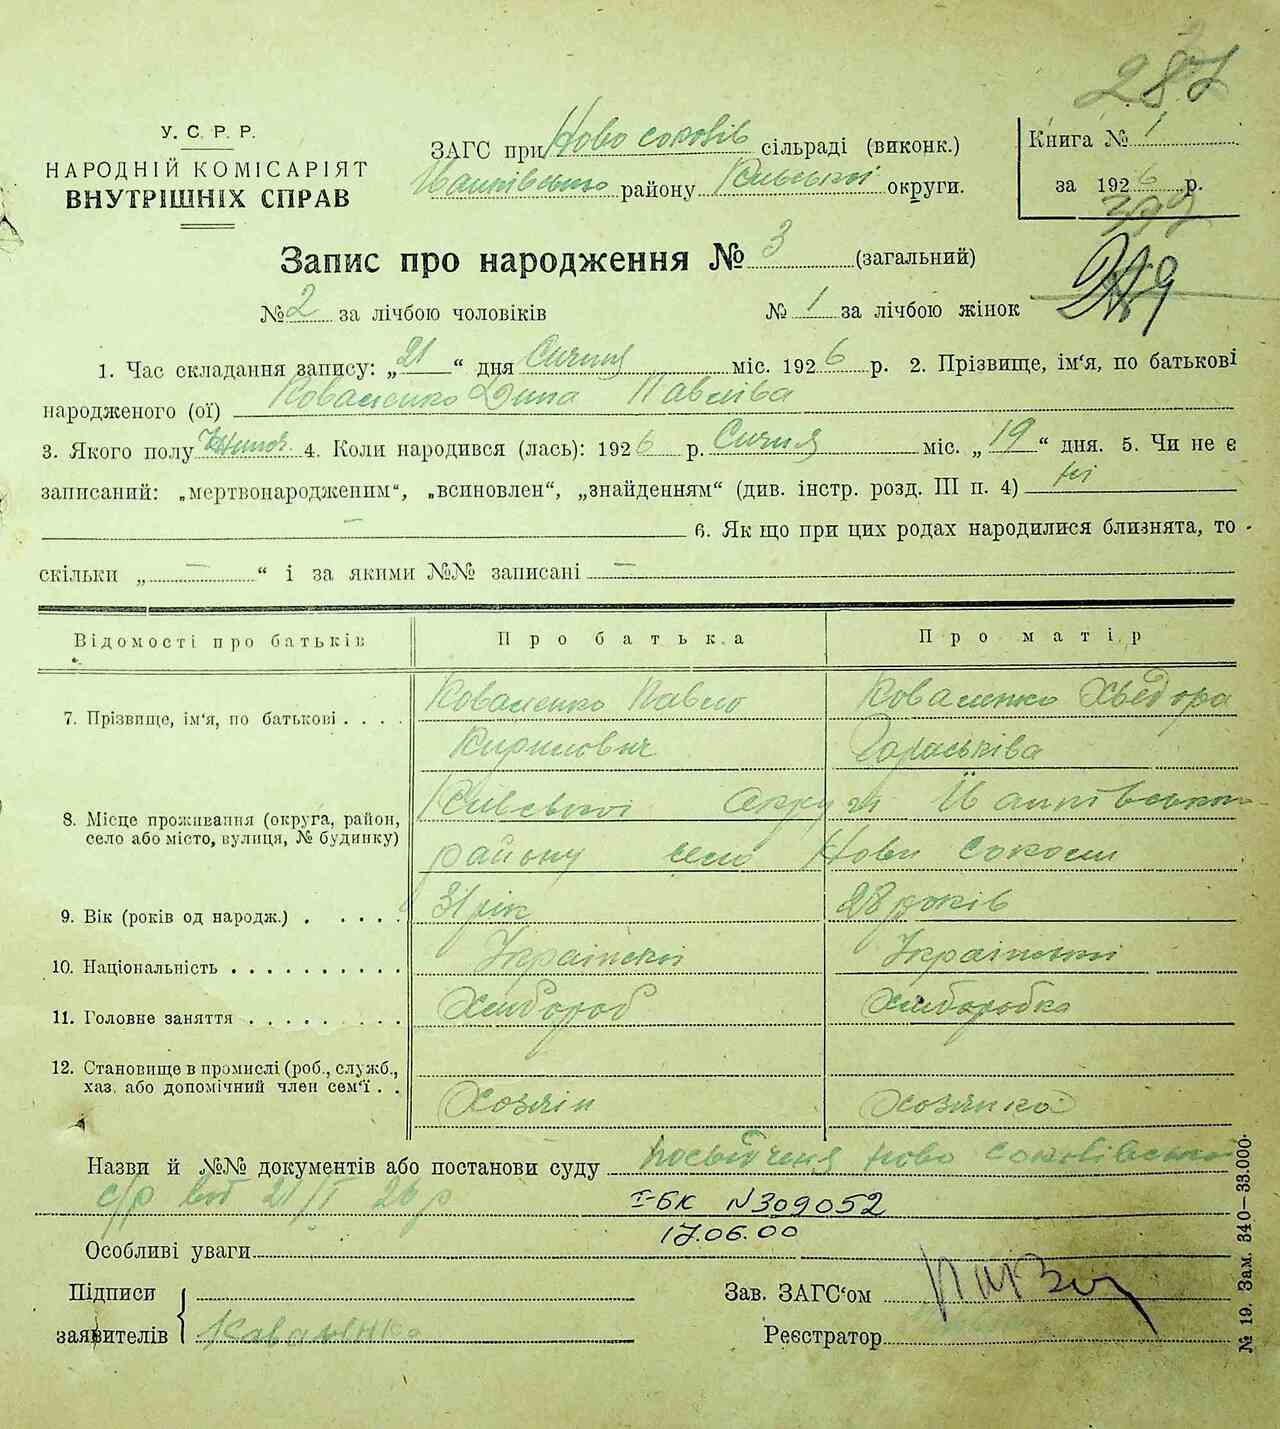 287
У. С. Р. Р.
НАРОДНІЙ КОМІСАРІЯТ
ВНУТРІШНІХ СПРАВ
ЗАГС при Ново соковів сільраді (виконк.)
району Київської округи.
Книга № 1
за 1926 р.
379
Запис про народження № 3 (загальний)
№ 2 за лічбою чоловіків № 1 за лічбою жінок
1. Час складання запису: „21“ дня Сичня міс. 1926 р. 2. Прізвище, ім'я, по батькові
народженого (ої) Коваленко Дина Павліва
3. Якого полу жиноч. 4. Коли народився (лась): 1926 р. Сичня міс. „19“ дня. 5. Чи не є
записаний: „мертвонародженим“, „всиновлен“, „знайденням“ (див. інстр. розд. III п. 4) ні
— 6. Як що при цих родах народилися близнята, то
скільки „ — “ і за якими №№ записані —
Відомості про батьків Про батька Про матір
7. Прізвище, ім'я, по батькові . . . . Коваленко Павло Коваленко Хведора
Кирилович Тараськіва
8. Місце проживання (округа, район, село або місто, вулиця, № будинку) Київської округи
району село Нови Соколи
9. Вік (років од народж.) . . . . . 31 рік 28 років
10. Національність . . . . . . . . . . Українски Українски
11. Головне заняття . . . . . . . . . Хлибороб Хлиборобка
12. Становище в промислі (роб., служб.,
хаз. або допомічний член сем'ї . . Хозяін Хозяика
Назви й №№ документів або постанови суду посвідченя ново соковівської
с/р від 21/I 26 р I-БК N309052
17.06.00
Особливі уваги
Підписи
заявителів Коваленко
Зав. ЗАГС'ом
Реєстратор
№ 19. Зам. 340—33.000.